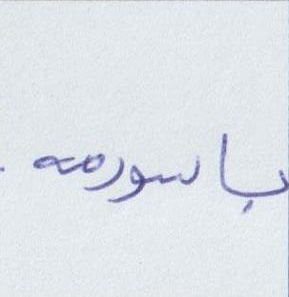 باسورمه .